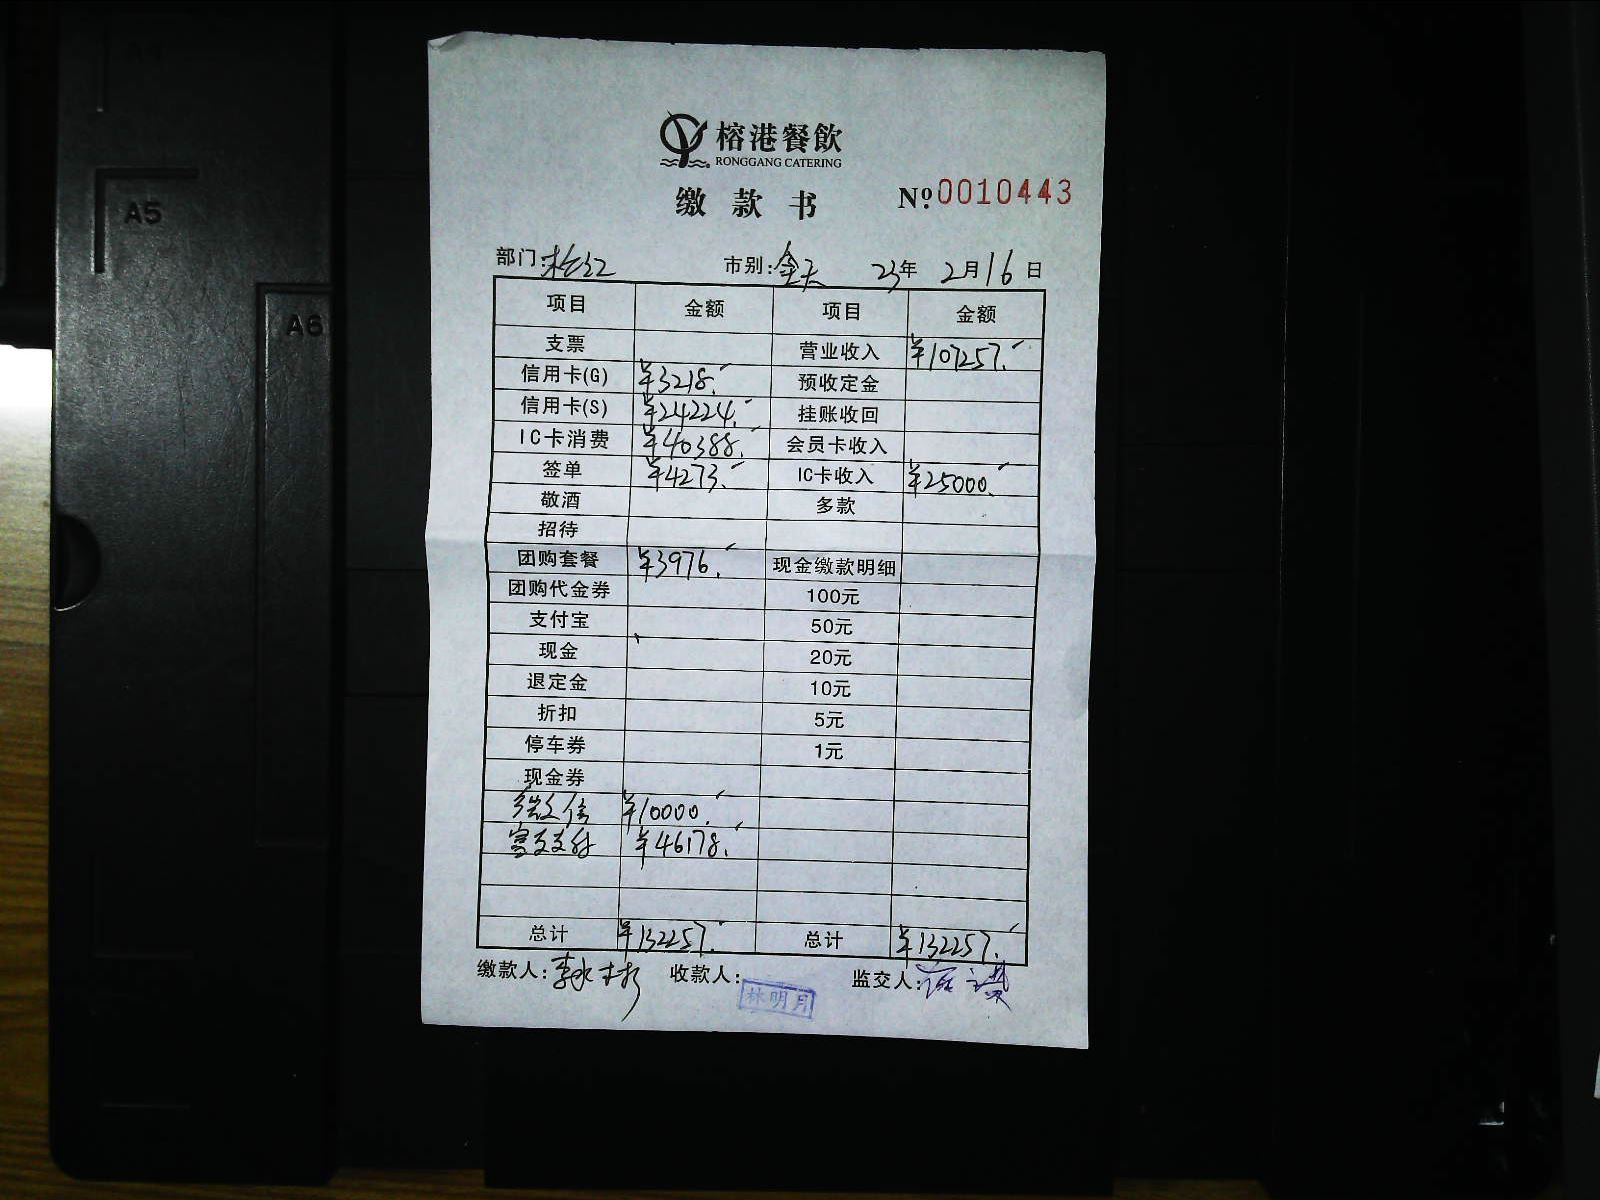 A4
A5
A6
榕港餐飲
RONGGANG CATERING
缴款书 №0010443
部门: 市别:全天 23年 2月16日
项目 金额 项目 金额
支票 营业收入 ¥107257.
信用卡(G) ¥3218. 预收定金
信用卡(S) ¥24224. 挂账收回
IC卡消费 ¥40388. 会员卡收入
签单 ¥4273. IC卡收入 ¥25000.
敬酒 多款
招待
团购套餐 ¥3976. 现金缴款明细
团购代金券 100元
支付宝 50元
现金 20元
退定金 10元
折扣 5元
停车券 1元
现金券
微信 ¥10000.
富友支付 ¥46178.
总计 ¥132257. 总计 ¥132257.
缴款人: 收款人: 林明月 监交人: